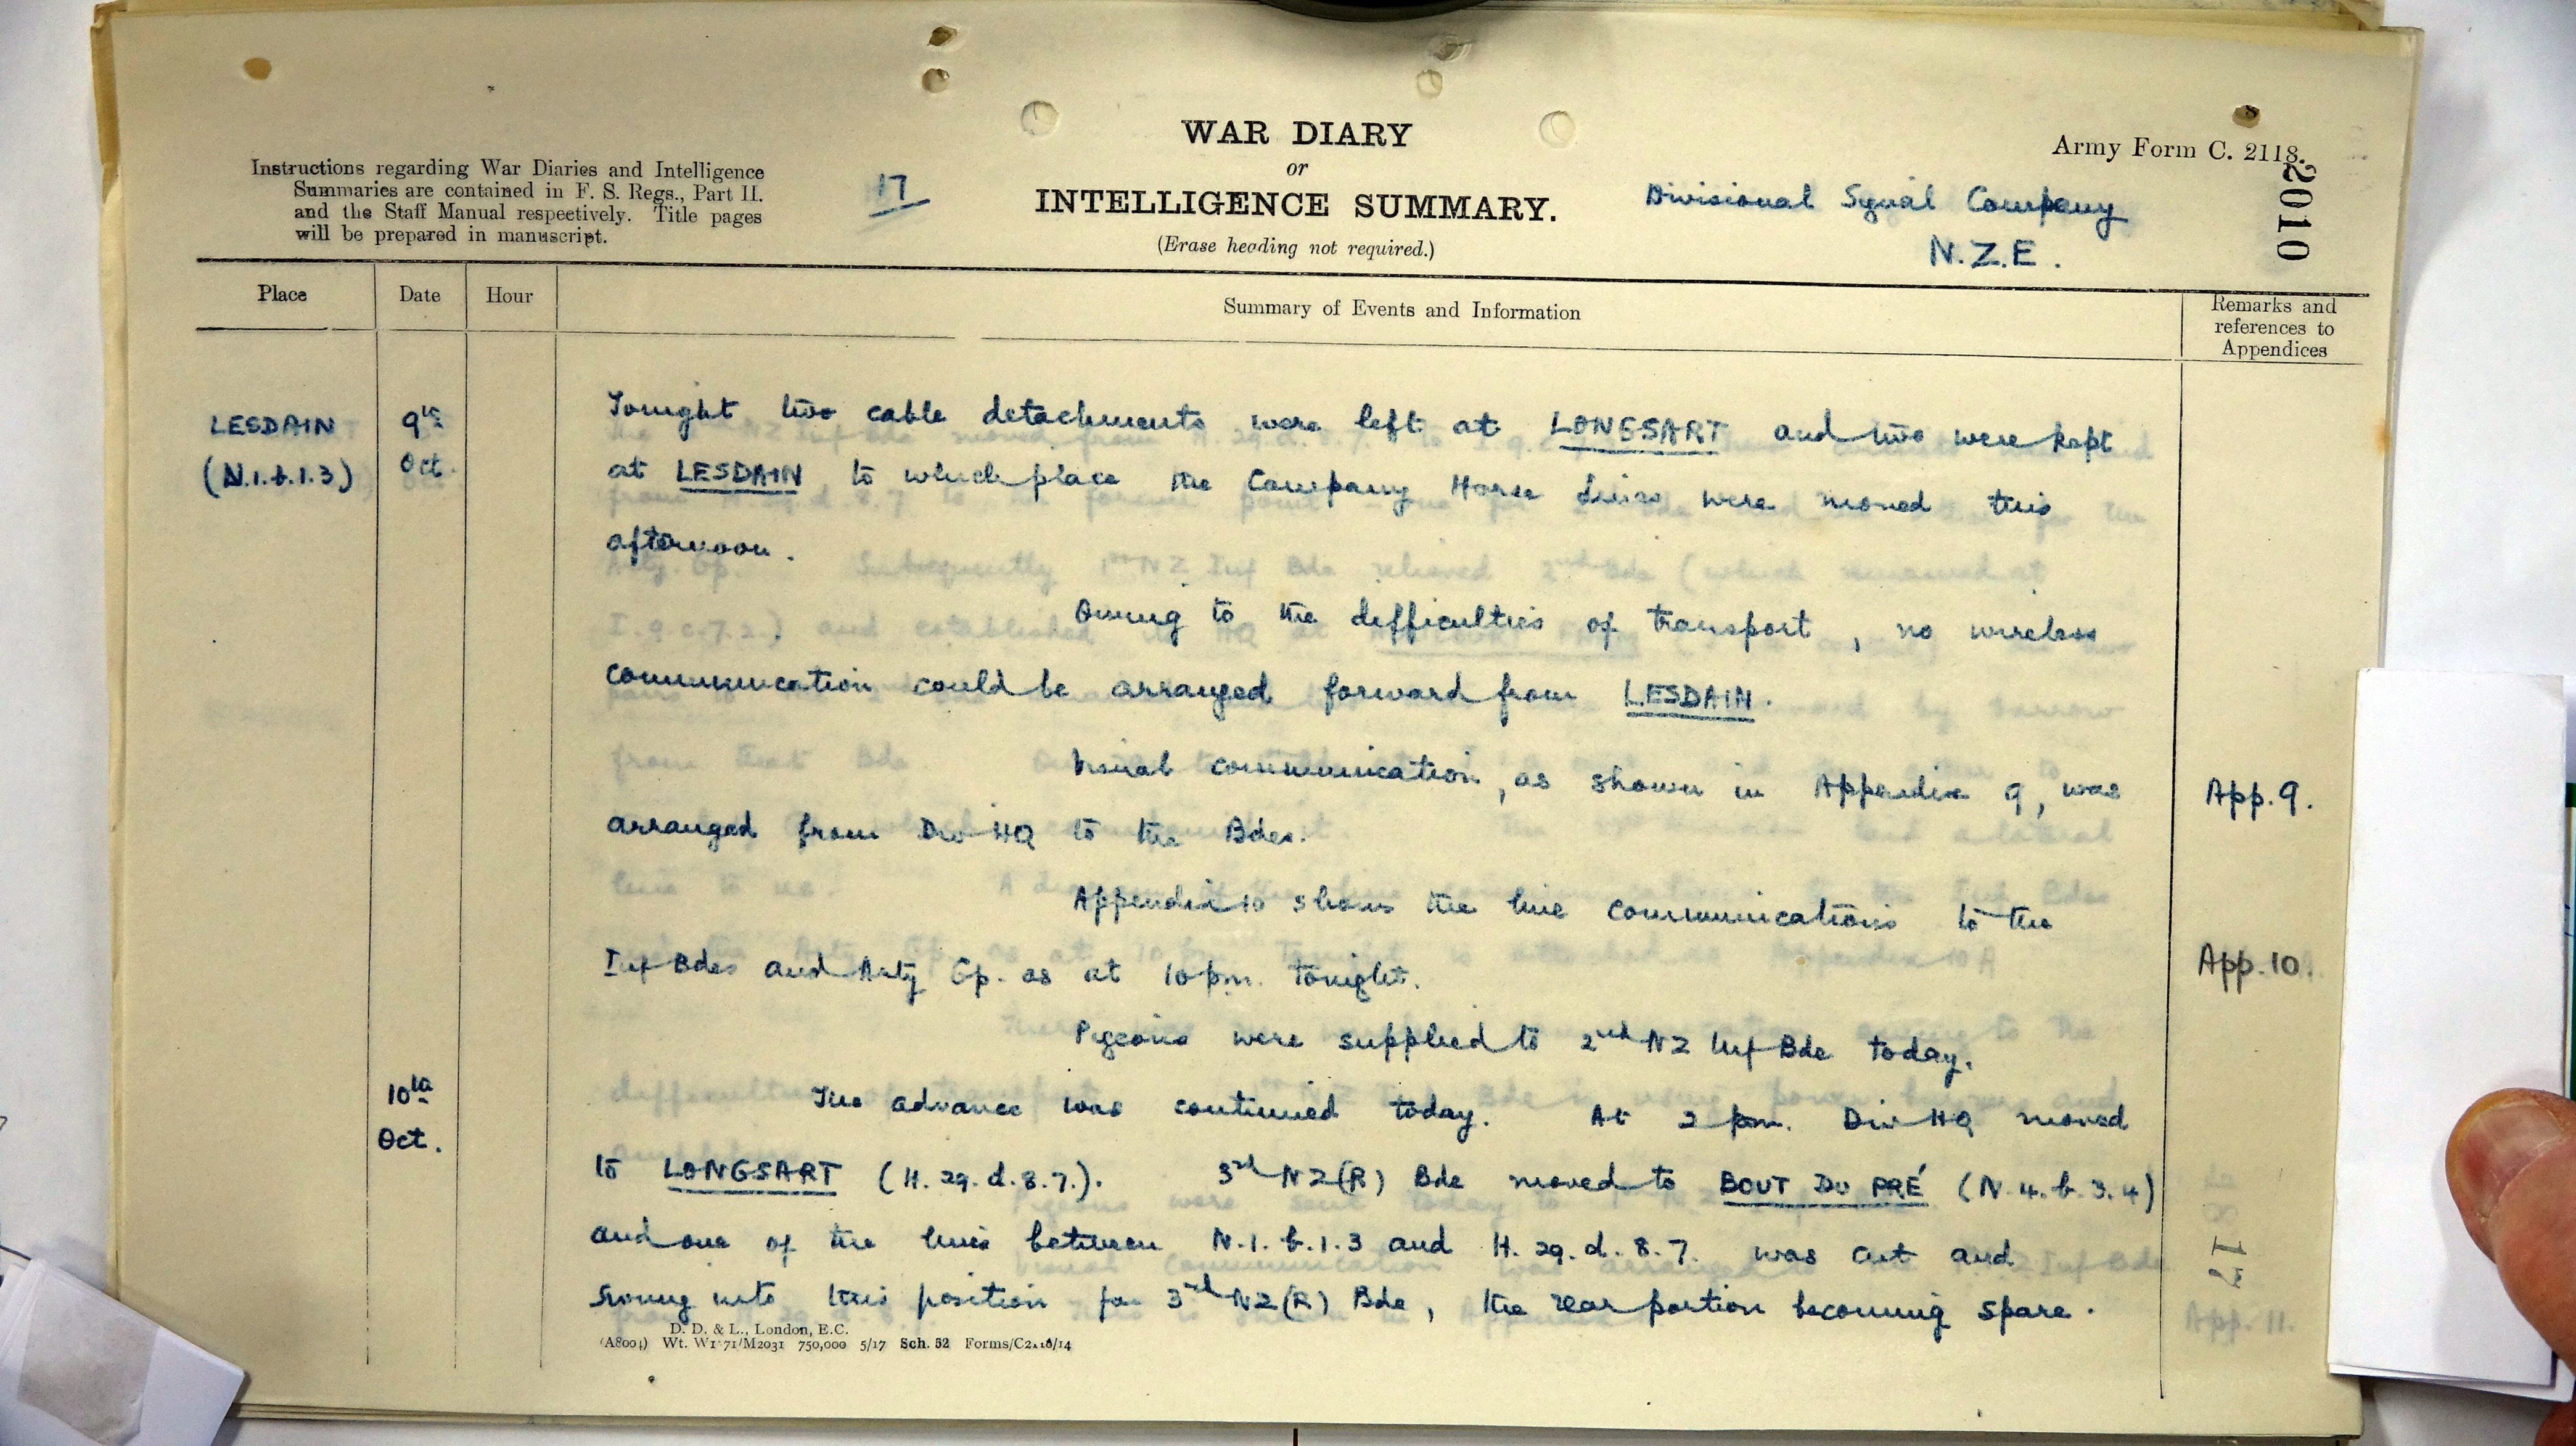 WAR DIARY
or
INTELLIGENCE SUMMARY.
(Erase heading not required.)
Army Form C. 2118.
2010
Instructions regarding War Diaries and Intelligence
Summaries are contained in F. S. Regs., Part II.
and the Staff Manual respectively. Title pages
will be prepared in manuscript.
17
Divisional Signal Company
N.Z.E.
Place
Date
Hour
Summary of Events and Information
Remarks and
references to
Appendices
LESDAIN
(N.1.b.1.3)
9th
Oct.
Tonight two cable detachments were left at LONGSART and two were kept
at LESDAIN to which place the Company Horse Lines were moved this
afternoon.
Owing to the difficulties of transport, no wireless
communication could be arranged forward from LESDAIN.
Visual communication, as shown in Appendix 9, was
App. 9.
arranged from Div HQ to the Bdes.
Appendix 10 shows the line communications to the
Inf Bdes and Arty Gp. as at 10 pm. tonight.
App. 10.
Pigeons were supplied to 2nd NZ Inf Bde today.
10th
Oct.
The advance was continued today. At 2 pm. Div HQ moved
to LONGSART (H.29.d.8.7.). 3rd NZ(R) Bde moved to BOUT DU PRÉ (N.4.b.3.4)
and one of the lines between N.1.b.1.3 and H.29.d.8.7. was cut and
swung into this position for 3rd NZ(R) Bde, the rear portion becoming spare.
D. D. & L., London, E.C.
(A8004) Wt. W1771/M2031 750,000 5/17 Sch. 52 Forms/C2118/14